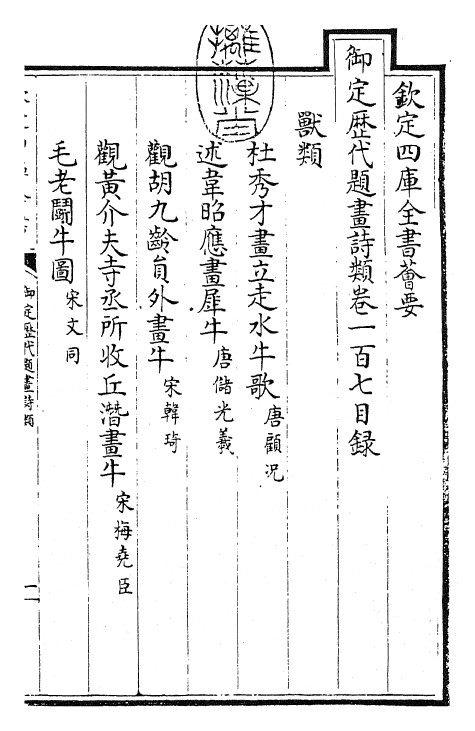 欽定四庫全書薈要
御定歴代題畫詩類卷一百七目録
獸類
杜秀才畫立走水牛歌 唐顧况
述韋昭應畫犀牛 唐儲光羲
觀胡九齡員外畫牛 宋韓琦
觀黃介夫寺丞所收丘潛畫牛 宋梅堯臣
毛老鬭牛圖 宋文同
御定歴代題畫詩類
一